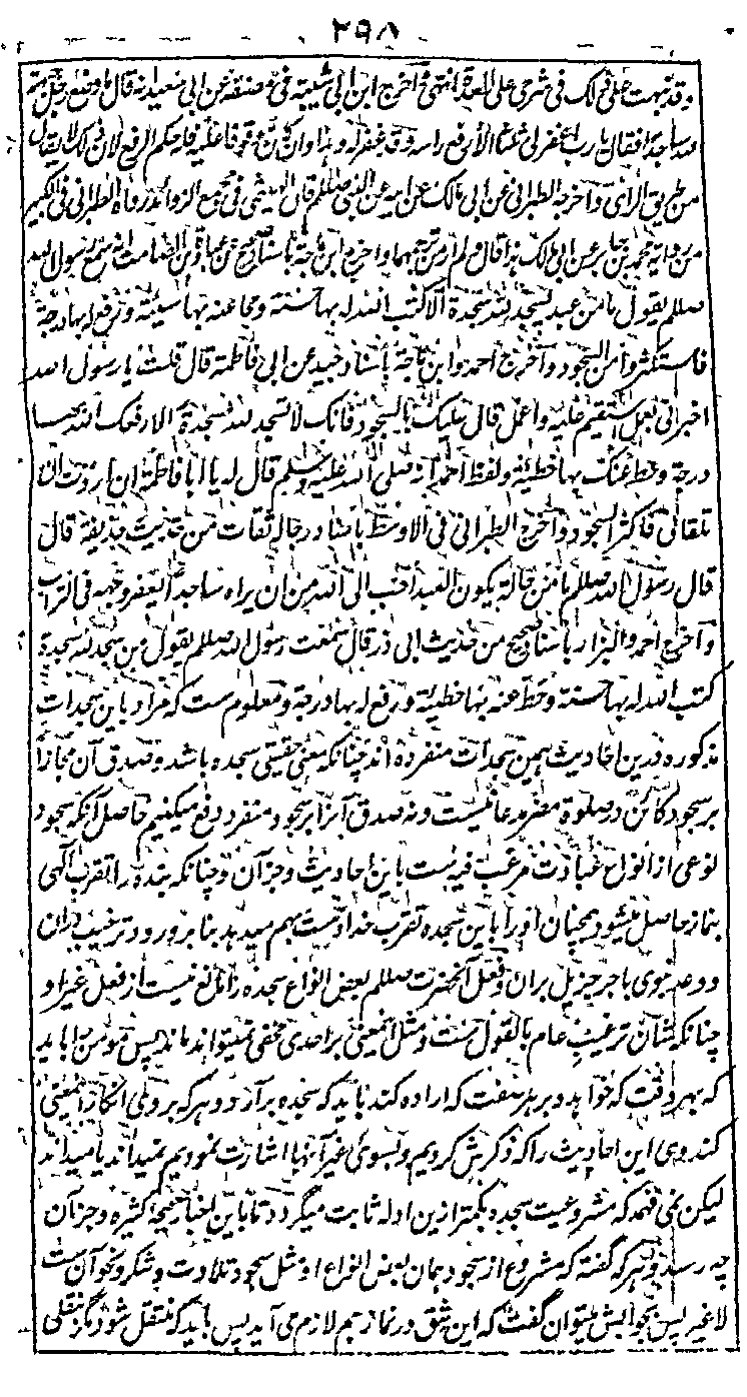 ۲۹۸
وقد نبهت على ذلك في شرحي على العدة انتهى وآخرج ابن ابي شيبة في مصنفه عن ابي سعيد انه قال ما وضع رجل جبهته
لله ساجدا فقال يارب اغفر لي ثلثا الا رفع راسه وقد غفر له وهذا وان كان موقوفا عليه فله حكم الرفع لان ذلك لا يقال
من طريق الرأي وآخرجه الطبراني عن ابي مالك عن ابيه عن النبي صللم قال الهيثمي في مجمع الزوائد رواه الطبراني في الكبير
من رواية محمد بن جابر عن ابي مالك هذا قال ولم ار من ترجمهما واخرج ابن ماجة باسناد صحيح عن عبادة بن الصامت انه سمع رسول الله
صللم يقول ما من عبد يسجد لله سجدة الا كتب الله له بها حسنة ومحا عنه بها سيئة ورفع له بها درجة
فاستكثروا من السجود وآخرج احمد وابن ماجة باسناد جيد عن ابي فاطمة قال قلت يا رسول الله
اخبرني بعمل استقيم عليه واعمل قال عليك بالسجود فانك لا تسجد لله سجدة الا رفعك الله بها
درجة وحط عنك بها خطيئة ولفظ احمد انه صلى الله عليه وسلم قال له يا ابا فاطمة ان اردت ان
تلقاني فاكثر السجود وآخرج الطبراني في الاوسط باسناد رجاله ثقات من حديث حذيفة قال
قال رسول الله صللم ما من حالة يكون العبد احب الى الله من ان يراه ساجدا يعفر وجهه في التراب
وآخرج احمد والبزار باسناد صحيح من حديث ابي ذر قال سمعت رسول الله صللم يقول من سجد لله سجدة
كتب الله له بها حسنة وحط عنه بها خطيئة ورفع له بها درجة ومعلوم ست كه مراد باين سجدات
مذكوره درين احاديث همين سجدات منفرده اند چنانكه معنى حقيقى سجده باشد وصدق آن مجازا
بر سجود كائن در صلوة مضر مدعا نيست ونه صدق آنرا بر سجود منفرد دفع ميكنيم حاصل آنكه سجود
نوعى از انواع عبادت مرغب فيه ست باين احاديث وجز آن وچنانكه بنده را تقرب الهى
بنماز حاصل ميشود همچنان او را باين سجده تقرب خداوند دست بهم ميدهد بنا بر ورود ترغيب دران
ووعد نبوى باجر جزيل بران وفعل آنحضرت صللم بعض انواع سجده را مانع نيست از فعل غير او
چنانكه شان ترغيب عام بالقول ست ومثل اين معنى بر احدى مخفى نميتواند ماند پس مومن را بايد
كه بهر وقت كه خواهد وبر هر صفت كه اراده كند بايد كه سجده برآرد وهر كه بر وى انكار اينمعنى
كند وى اين احاديث را كه ذكرش كرديم وبسوى غير آنها اشارت نموديم نميداند يا ميداند
ليكن نمى فهمد كه مشروعيت سجده بكمتر ازين ادله ثابت ميگردد تا باين اخبار صحيحه كثيره وجز آن
چه رسد وهر كه گفته كه مشروع از سجود همان بعض انواع او مثل سجود تلاوت وشكر ونحو آن ست
لا غير پس بجوابش ميتوان گفت كه اين شق در نماز هم لازم مى آيد پس بايد كه متنفل نشود مگر بنفلى